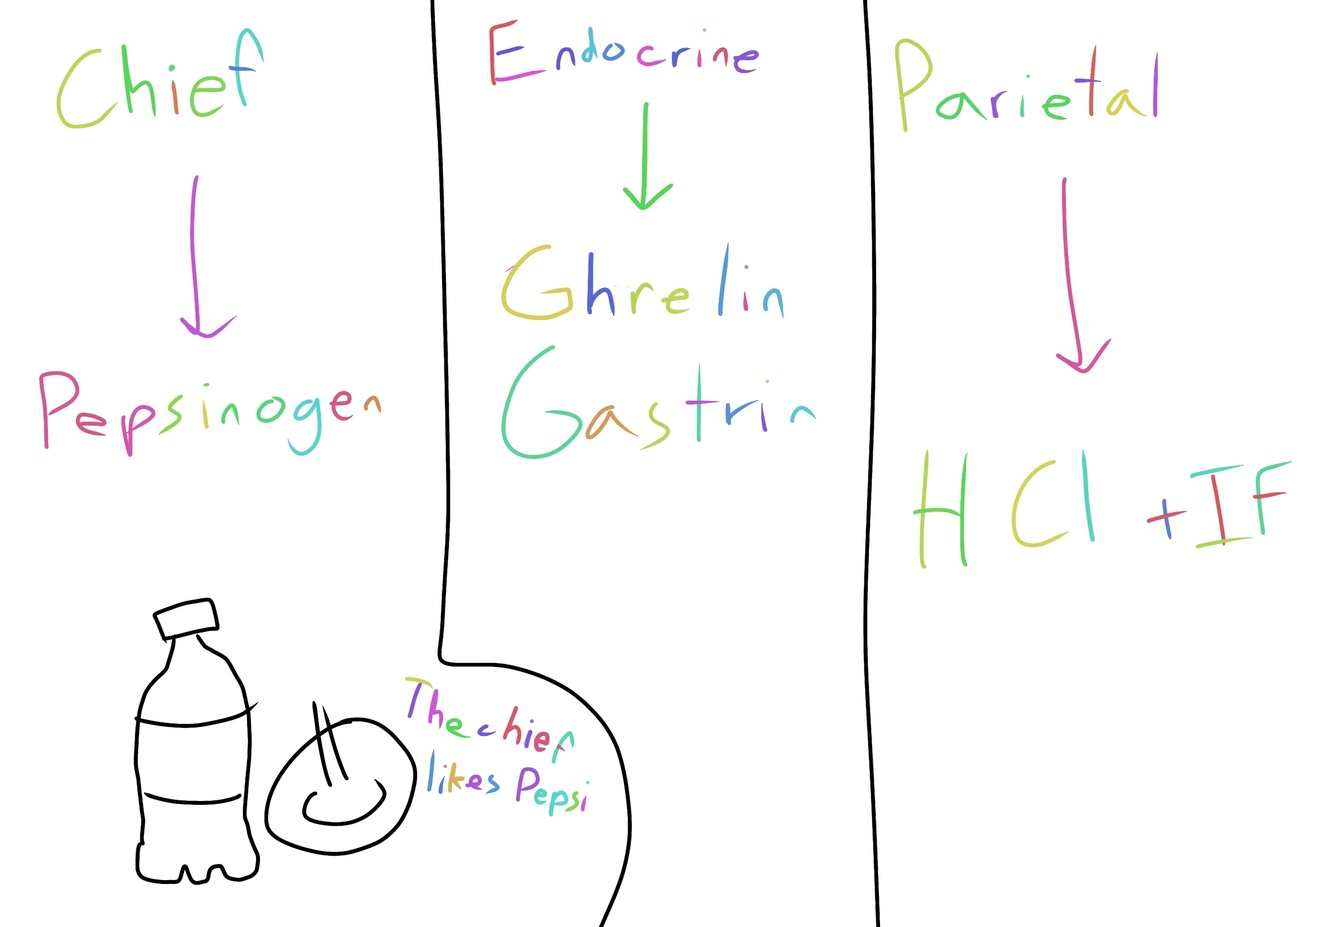 Chief
Pepsinogen
The chief
likes Pepsi
Endocrine
Ghrelin
Gastrin
Parietal
HCl + IF